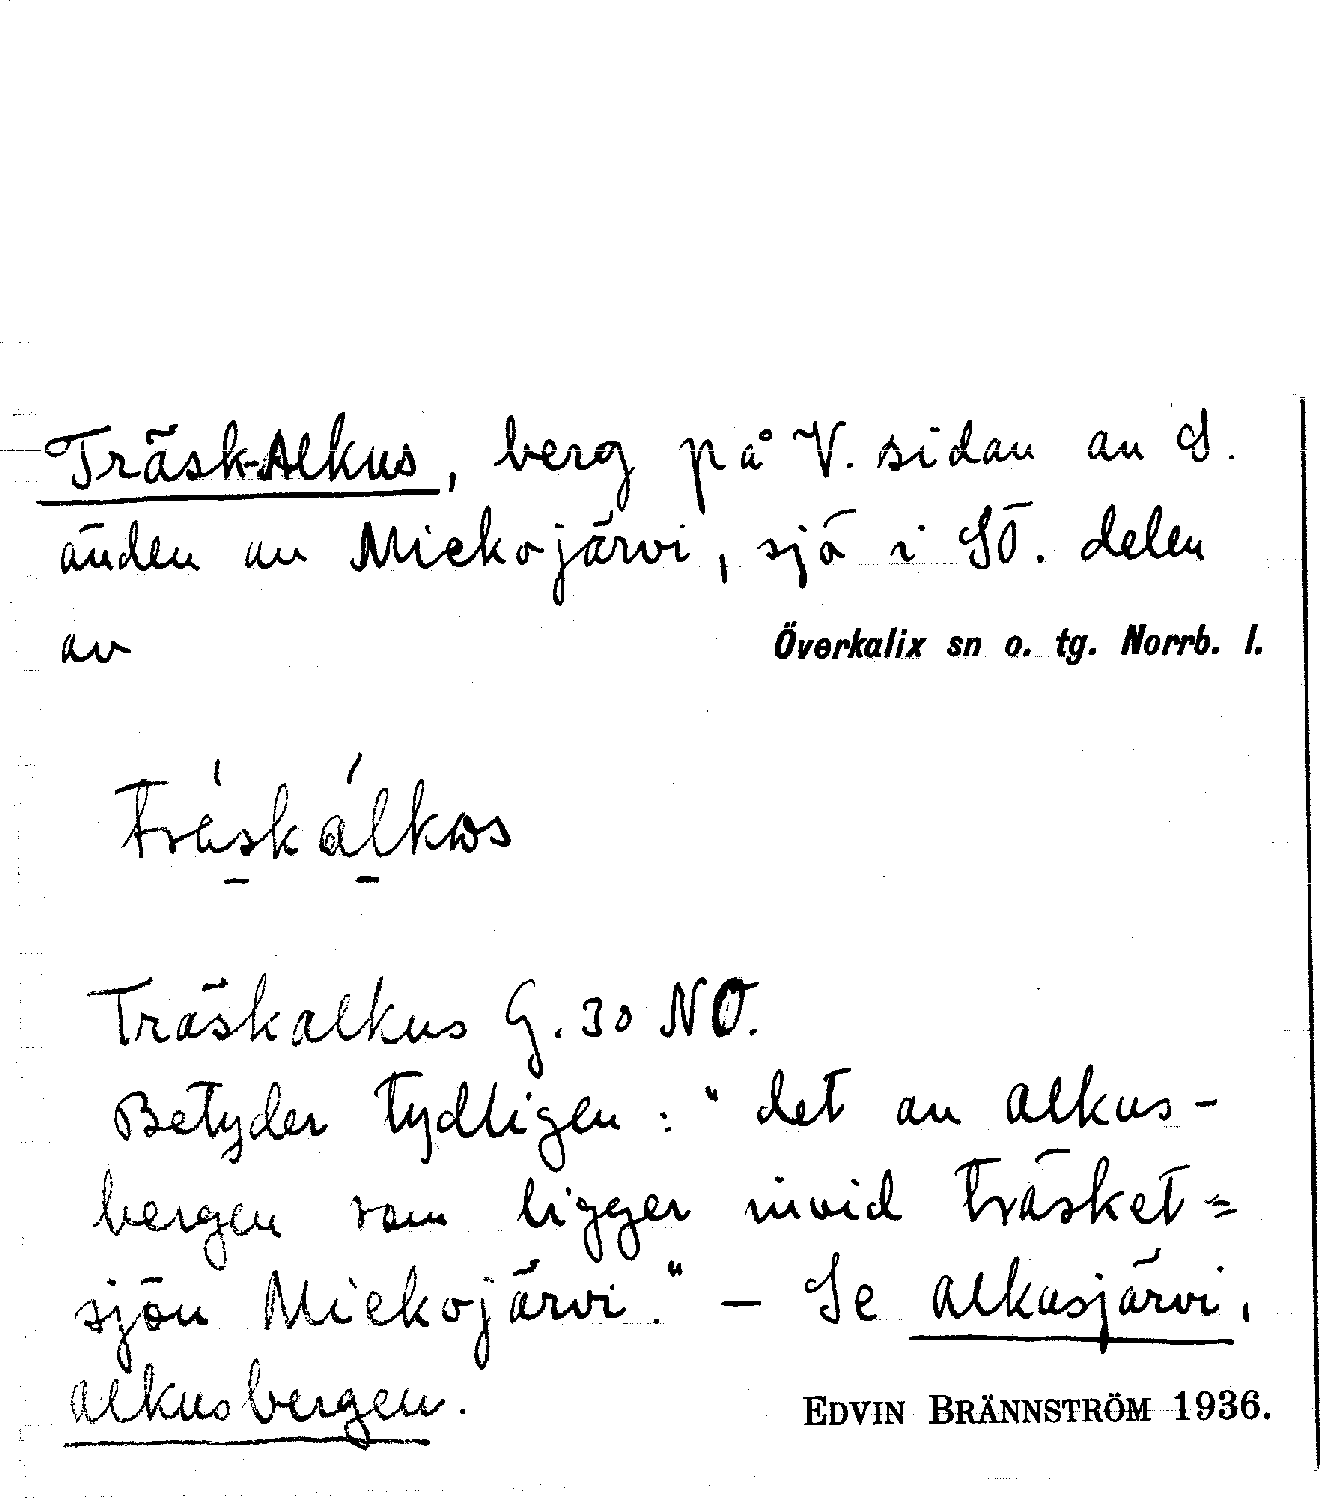 Träsk-Alkus, berg på V. sidan av S.
änden av Miekojärvi, sjö i SÖ. delen
av Överkalix sn o. tg. Norrb. l.
träskálkωs
Träskalkus G. 30 NO.
Betyder tydligen: "det av Alkus-
bergen som ligger invid träsket =
sjön Miekojärvi." – Se Alkusjärvi,
Alkusbergen.
EDVIN BRÄNNSTRÖM 1936.